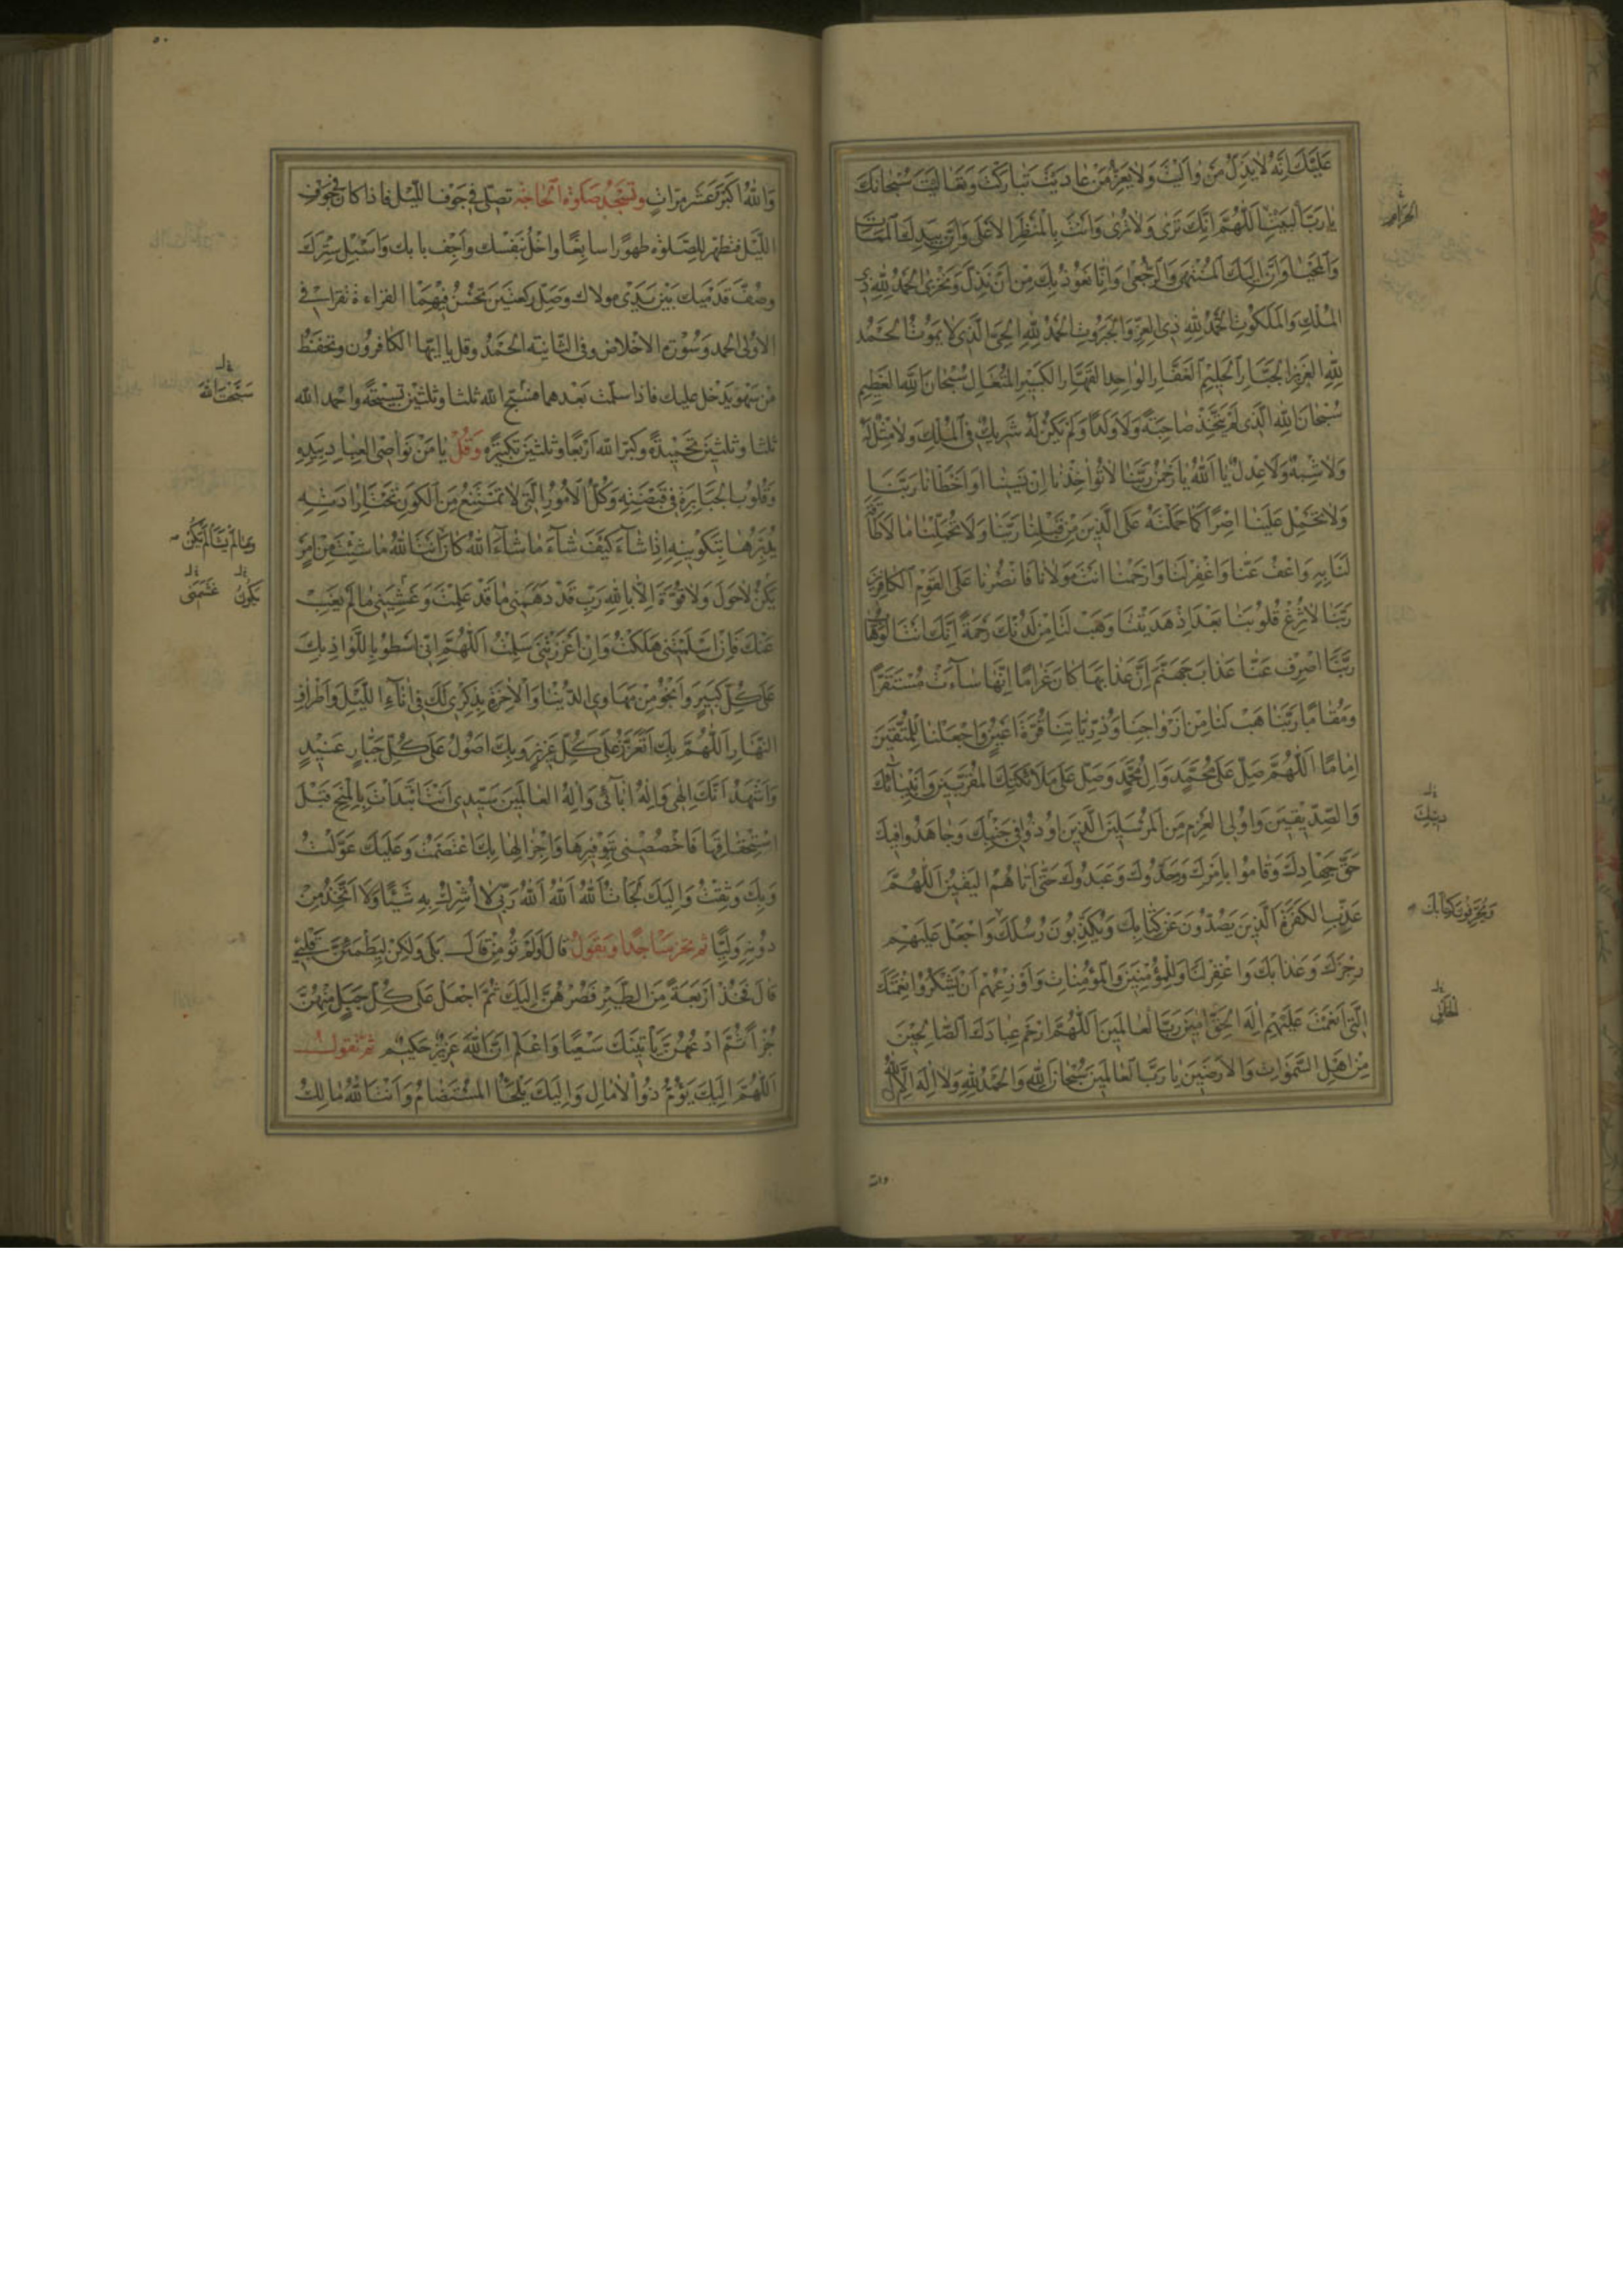 عَلَيْكَ اِنَّهُ لَا يَذِلُّ مَنْ وَالَيْتَ وَلَا يَعِزُّ مَنْ عَادَيْتَ تَبَارَكْتَ وَتَعَالَيْتَ سُبْحَانَكَ
يَا رَبَّ الْبَيْتِ اَللّٰهُمَّ اِنَّكَ تَرٰى وَلَا تُرٰى وَاَنْتَ بِالْمَنْظَرِ الْاَعْلٰى وَاِنَّ بِيَدِكَ الْمَمَاتَ
الحرام
وَالْمَحْيَا وَاِنَّ اِلَيْكَ الْمُنْتَهٰى وَالرُّجْعٰى وَاِنَّا نَعُوذُ بِكَ مِنْ اَنْ نَذِلَّ وَنَخْزٰى اَلْحَمْدُ لِلّٰهِ ذِي
الْمُلْكِ وَالْمَلَكُوتِ اَلْحَمْدُ لِلّٰهِ ذِي الْعِزِّ وَالْجَبَرُوتِ اَلْحَمْدُ لِلّٰهِ الْحَيِّ الَّذِي لَا يَمُوتُ اَلْحَمْدُ
لِلّٰهِ الْعَزِيزِ الْجَبَّارِ الْحَلِيمِ الْغَفَّارِ الْوَاحِدِ الْقَهَّارِ الْكَبِيرِ الْمُتَعَالِ سُبْحَانَ اللّٰهِ الْعَظِيمِ
سُبْحَانَ اللّٰهِ الَّذِي لَمْ يَتَّخِذْ صَاحِبَةً وَلَا وَلَدًا وَلَمْ يَكُنْ لَهُ شَرِيكٌ فِي الْمُلْكِ وَلَا مِثْلَ لَهُ
وَلَا شِبْهَ وَلَا عِدْلَ يَا اَللّٰهُ يَا رَحْمٰنُ رَبَّنَا لَا تُؤَاخِذْنَا اِنْ نَسِينَا اَوْ اَخْطَأْنَا رَبَّنَا
وَلَا تَحْمِلْ عَلَيْنَا اِصْرًا كَمَا حَمَلْتَهُ عَلَى الَّذِينَ مِنْ قَبْلِنَا رَبَّنَا وَلَا تُحَمِّلْنَا مَا لَا طَاقَةَ
لَنَا بِهِ وَاعْفُ عَنَّا وَاغْفِرْ لَنَا وَارْحَمْنَا اَنْتَ مَوْلَانَا فَانْصُرْنَا عَلَى الْقَوْمِ الْكَافِرِينَ
رَبَّنَا لَا تُزِغْ قُلُوبَنَا بَعْدَ اِذْ هَدَيْتَنَا وَهَبْ لَنَا مِنْ لَدُنْكَ رَحْمَةً اِنَّكَ اَنْتَ الْوَهَّابُ
رَبَّنَا اصْرِفْ عَنَّا عَذَابَ جَهَنَّمَ اِنَّ عَذَابَهَا كَانَ غَرَامًا اِنَّهَا سَآءَتْ مُسْتَقَرًّا
وَمُقَامًا رَبَّنَا هَبْ لَنَا مِنْ اَزْوَاجِنَا وَذُرِّيَّاتِنَا قُرَّةَ اَعْيُنٍ وَاجْعَلْنَا لِلْمُتَّقِينَ
اِمَامًا اَللّٰهُمَّ صَلِّ عَلٰى مُحَمَّدٍ وَاٰلِ مُحَمَّدٍ وَصَلِّ عَلٰى مَلَائِكَتِكَ الْمُقَرَّبِينَ وَاَنْبِيَآئِكَ
وَالصِّدِّيقِينَ وَاُولِي الْعَزْمِ مِنَ الْمُرْسَلِينَ الَّذِينَ اُوذُوا فِي جَنْبِكَ وَجَاهَدُوا فِيكَ
حَقَّ جِهَادِكَ وَقَامُوا بِاَمْرِكَ وَوَحَّدُوكَ وَعَبَدُوكَ حَتّٰى اَتَاهُمُ الْيَقِينُ اَللّٰهُمَّ
عَذِّبِ الْكَفَرَةَ الَّذِينَ يَصُدُّونَ عَنْ كِتَابِكَ وَيُكَذِّبُونَ رُسُلَكَ وَاجْعَلْ عَلَيْهِمْ
وَيُحَرِّفُونَ كِتَابَكَ
رِجْزَكَ وَعَذَابَكَ وَاغْفِرْ لَنَا وَلِلْمُؤْمِنِينَ وَالْمُؤْمِنَاتِ وَاَوْزِعْهُمْ اَنْ يَشْكُرُوا نِعْمَتَكَ
الَّتِي اَنْعَمْتَ عَلَيْهِمْ اِلٰهَ الْحَقِّ اٰمِينَ رَبَّ الْعَالَمِينَ اَللّٰهُمَّ ارْحَمْ عِبَادَكَ الصَّالِحِينَ
مِنْ اَهْلِ السَّمٰوَاتِ وَالْاَرَضِينَ يَا رَبَّ الْعَالَمِينَ سُبْحَانَ اللّٰهِ وَالْحَمْدُ لِلّٰهِ وَلَا اِلٰهَ اِلَّا اللّٰهُ
والله
٥٠
وَاللّٰهُ اَكْبَرُ عَشْرَ مَرَّاتٍ صَلٰوةُ الْحَاجَةِ تصلى فِي جَوْفِ اللَّيْلِ فَاِذَا كَانَ فِي جَوْفِ
اللَّيْلِ فتطهر لِلصَّلٰوةِ طهورا سابغا وَاخْلُ بِنَفْسِكَ وَاَجِفْ بَابَكَ وَاَسْبِلْ سِتْرَكَ
وَصُفَّ قَدَمَيْكَ بَيْنَ يَدَيْ مَوْلَاكَ وَصَلِّ رَكْعَتَيْنِ تُحْسِنُ فِيهِمَا الْقِرَاءَةَ تَقْرَأُ فِي
الْاُولٰى الْحَمْدَ وَسُورَةَ الْاِخْلَاصِ وَفِي الثَّانِيَةِ الْحَمْدَ وَقُلْ يَا اَيُّهَا الْكَافِرُونَ وَتَحَفَّظْ
مِنْ سَهْوٍ يَدْخُلُ عَلَيْكَ فَاِذَا سَلَّمْتَ بَعْدَهُمَا فَسَبِّحِ اللّٰهَ ثَلٰثًا وَثَلٰثِينَ تَسْبِيحَةً وَاحْمَدِ اللّٰهَ
ثَلٰثًا وَثَلٰثِينَ تَحْمِيدَةً وَكَبِّرِ اللّٰهَ اَرْبَعًا وَثَلٰثِينَ تَكْبِيرَةً وَقُلْ يَا مَنْ نَوَاصِي الْعِبَادِ بِيَدِهِ
وَقُلُوبُ الْجَبَابِرَةِ فِي قَبْضَتِهِ وَكُلُّ الْاُمُورِ الَّتِي لَا تَمْتَنِعُ مِنَ الْكَوْنِ تَحْتَ اِرَادَتِهِ
يُدَبِّرُهَا بِتَكْوِينِهِ اِذَا شَآءَ كَيْفَ شَآءَ مَا شَآءَ اللّٰهُ كَانَ اَنْتَ اللّٰهُ مَا شِئْتَ مِنْ اَمْرٍ
يَكُنْ لَا حَوْلَ وَلَا قُوَّةَ اِلَّا بِاللّٰهِ رَبِّ قَدْ دَهَمَنِي مَا قَدْ عَلِمْتَ وَغَشِيَنِي مَا لَمْ يَغِبْ
عَنْكَ فَاِنْ اَسْلَمْتَنِي هَلَكْتُ وَاِنْ اَعْزَزْتَنِي سَلِمْتُ اَللّٰهُمَّ اِنِّي اَسْطُو بِاللِّوَاذِ بِكَ
عَلٰى كُلِّ كَبِيرٍ وَاَنْجُو مِنْ مَهَاوِي الدُّنْيَا وَالْاٰخِرَةِ بِذِكْرِي لَكَ فِي اٰنَآءِ اللَّيْلِ وَاَطْرَافِ
النَّهَارِ اَللّٰهُمَّ بِكَ اَتَعَزَّزُ عَلٰى كُلِّ عَزِيزٍ وَبِكَ اَصُولُ عَلٰى كُلِّ جَبَّارٍ عَنِيدٍ
وَاَشْهَدُ اَنَّكَ اِلٰهِي وَاِلٰهُ اٰبَآئِي وَاِلٰهُ الْعَالَمِينَ سَيِّدِي اَنْتَ ابْتَدَأْتَ بِالْمِنَحِ قَبْلَ
اسْتِحْقَاقِهَا فَاخْصُصْنِي بِتَوْفِيرِهَا وَاِجْزَالِهَا بِكَ اعْتَصَمْتُ وَعَلَيْكَ عَوَّلْتُ
وَبِكَ وَثِقْتُ وَاِلَيْكَ لَجَأْتُ اَللّٰهُ اَللّٰهُ اَللّٰهُ رَبِّي لَا اُشْرِكُ بِهِ شَيْئًا وَلَا اَتَّخِذُ مِنْ
دُونِهِ وَلِيًّا ثم تخر ساجدا وتقول قَالَ اَوَلَمْ تُؤْمِنْ قَالَ بَلٰى وَلٰكِنْ لِيَطْمَئِنَّ قَلْبِي
قَالَ فَخُذْ اَرْبَعَةً مِنَ الطَّيْرِ فَصُرْهُنَّ اِلَيْكَ ثُمَّ اجْعَلْ عَلٰى كُلِّ جَبَلٍ مِنْهُنَّ
جُزْءًا ثُمَّ ادْعُهُنَّ يَأْتِينَكَ سَعْيًا وَاعْلَمْ اَنَّ اللّٰهَ عَزِيزٌ حَكِيمٌ ثم تقول
اَللّٰهُمَّ اِلَيْكَ يَؤُمُّ ذَوُو الْاٰمَالِ وَاِلَيْكَ يَلْجَأُ الْمُسْتَضَامُ وَاَنْتَ اللّٰهُ مَالِكُ
سَبَّحْتَ اللّٰهَ
وَمَا لَمْ يَشَأْ لَمْ يَكُنْ
يَكُونُ
غَشِيَنِي